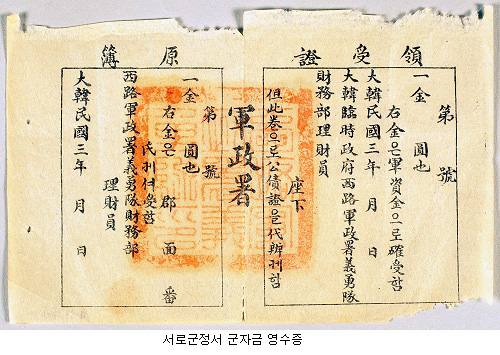 領受證
第 號
一金 圓也
右金은軍資金으로確受함
大韓民國三年 月 日
大韓臨時政府西路軍政署義勇隊
財務部理財員
座下
但此券으로公債證을代辦케함
軍政署
原簿
第 號
一金 圓也
右金은 郡 面 番
氏게셔受함
西路軍政署義勇隊財務部
理財員
大韓民國三年 月 日
서로군정서 군자금 영수증